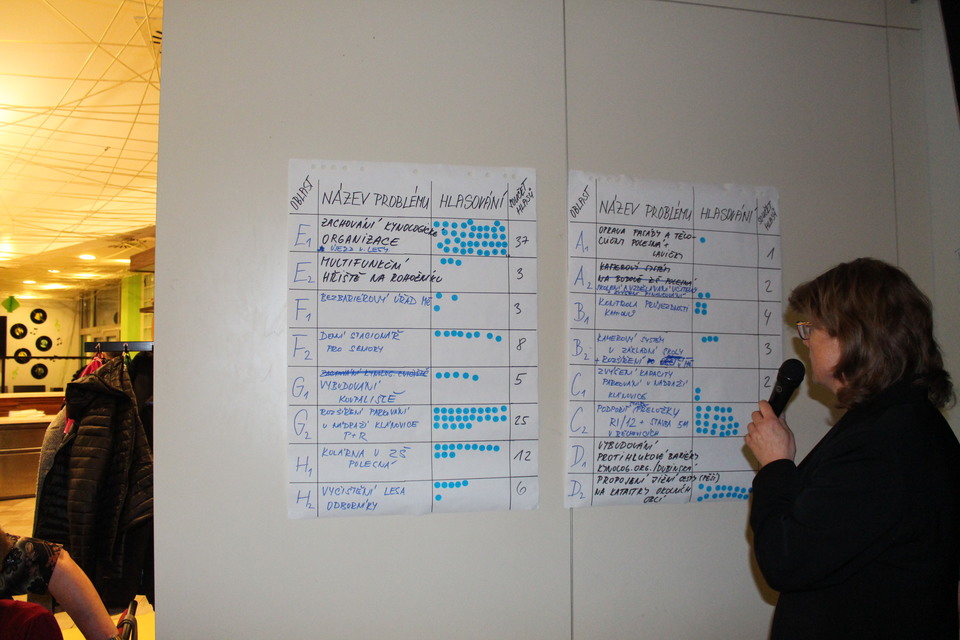 OBLAST NÁZEV PROBLÉMU HLASOVÁNÍ SOUČET HLASŮ
E1 ZACHOVÁNÍ KYNOLOGICKÉ
ORGANIZACE 37
E2 MULTIFUNKČNÍ
HŘIŠTĚ NA ROHOŽNÍKU 3
F1 BEZBARIEROVÝ ÚŘAD MČ 3
F2 DENNÍ STACIONÁŘ
PRO SENIORY 8
G1 VYBUDOVÁNÍ
KOUPALIŠTĚ 5
G2 ROZŠÍŘENÍ PARKOVÁNÍ
U NÁDRAŽÍ KLÁNOVICE
P+R 25
H1 KOLÁRNA U ZŠ
POLECNÁ 12
H2 VYČIŠTĚNÍ LESA
ODBORNÍKY 6
OBLAST NÁZEV PROBLÉMU HLASOVÁNÍ SOUČET HLASŮ
A1 OPRAVA FASÁDY A TĚLO-
CVIČNY POLESNÁ +
LAVIČKY 1
A2 KAMEROVÝ SYSTÉM
NA BUDOVĚ ZŠ POLESNÁ 2
B1 KONTROLA PRŮJEZDNOSTI
KAMIONŮ 4
B2 KAMEROVÝ SYSTÉM
U ZÁKLADNÍ ŠKOLY
+ ROZŠÍŘENÍ 3
C1 ZVÝŠENÍ KAPACITY
PARKOVÁNÍ U NÁDRAŽÍ
KLÁNOVICE 2
C2 PODPORA PŘELOŽKY
RI/12 + STAVBA 511
V BĚCHOVICÍCH
D1 VYBUDOVÁNÍ
PROTIHLUKOVÉ BARIÉRY
KYNOLOG.ORG./DUBINSKÁ
D2 PROPOJENÍ JIŽNÍ CESTY (PĚŠÍ)
NA KATASTRY OKOLNÍCH
OBCÍ